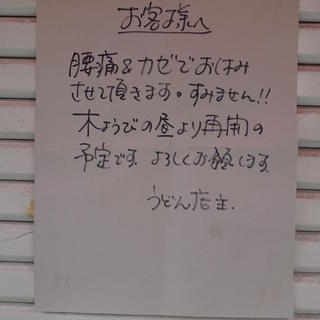 お客様へ
腰痛&カゼでお休み
させて頂きます。すみません!!
木ようびの昼より再開の
予定です。よろしくお願します。
うどん店主.